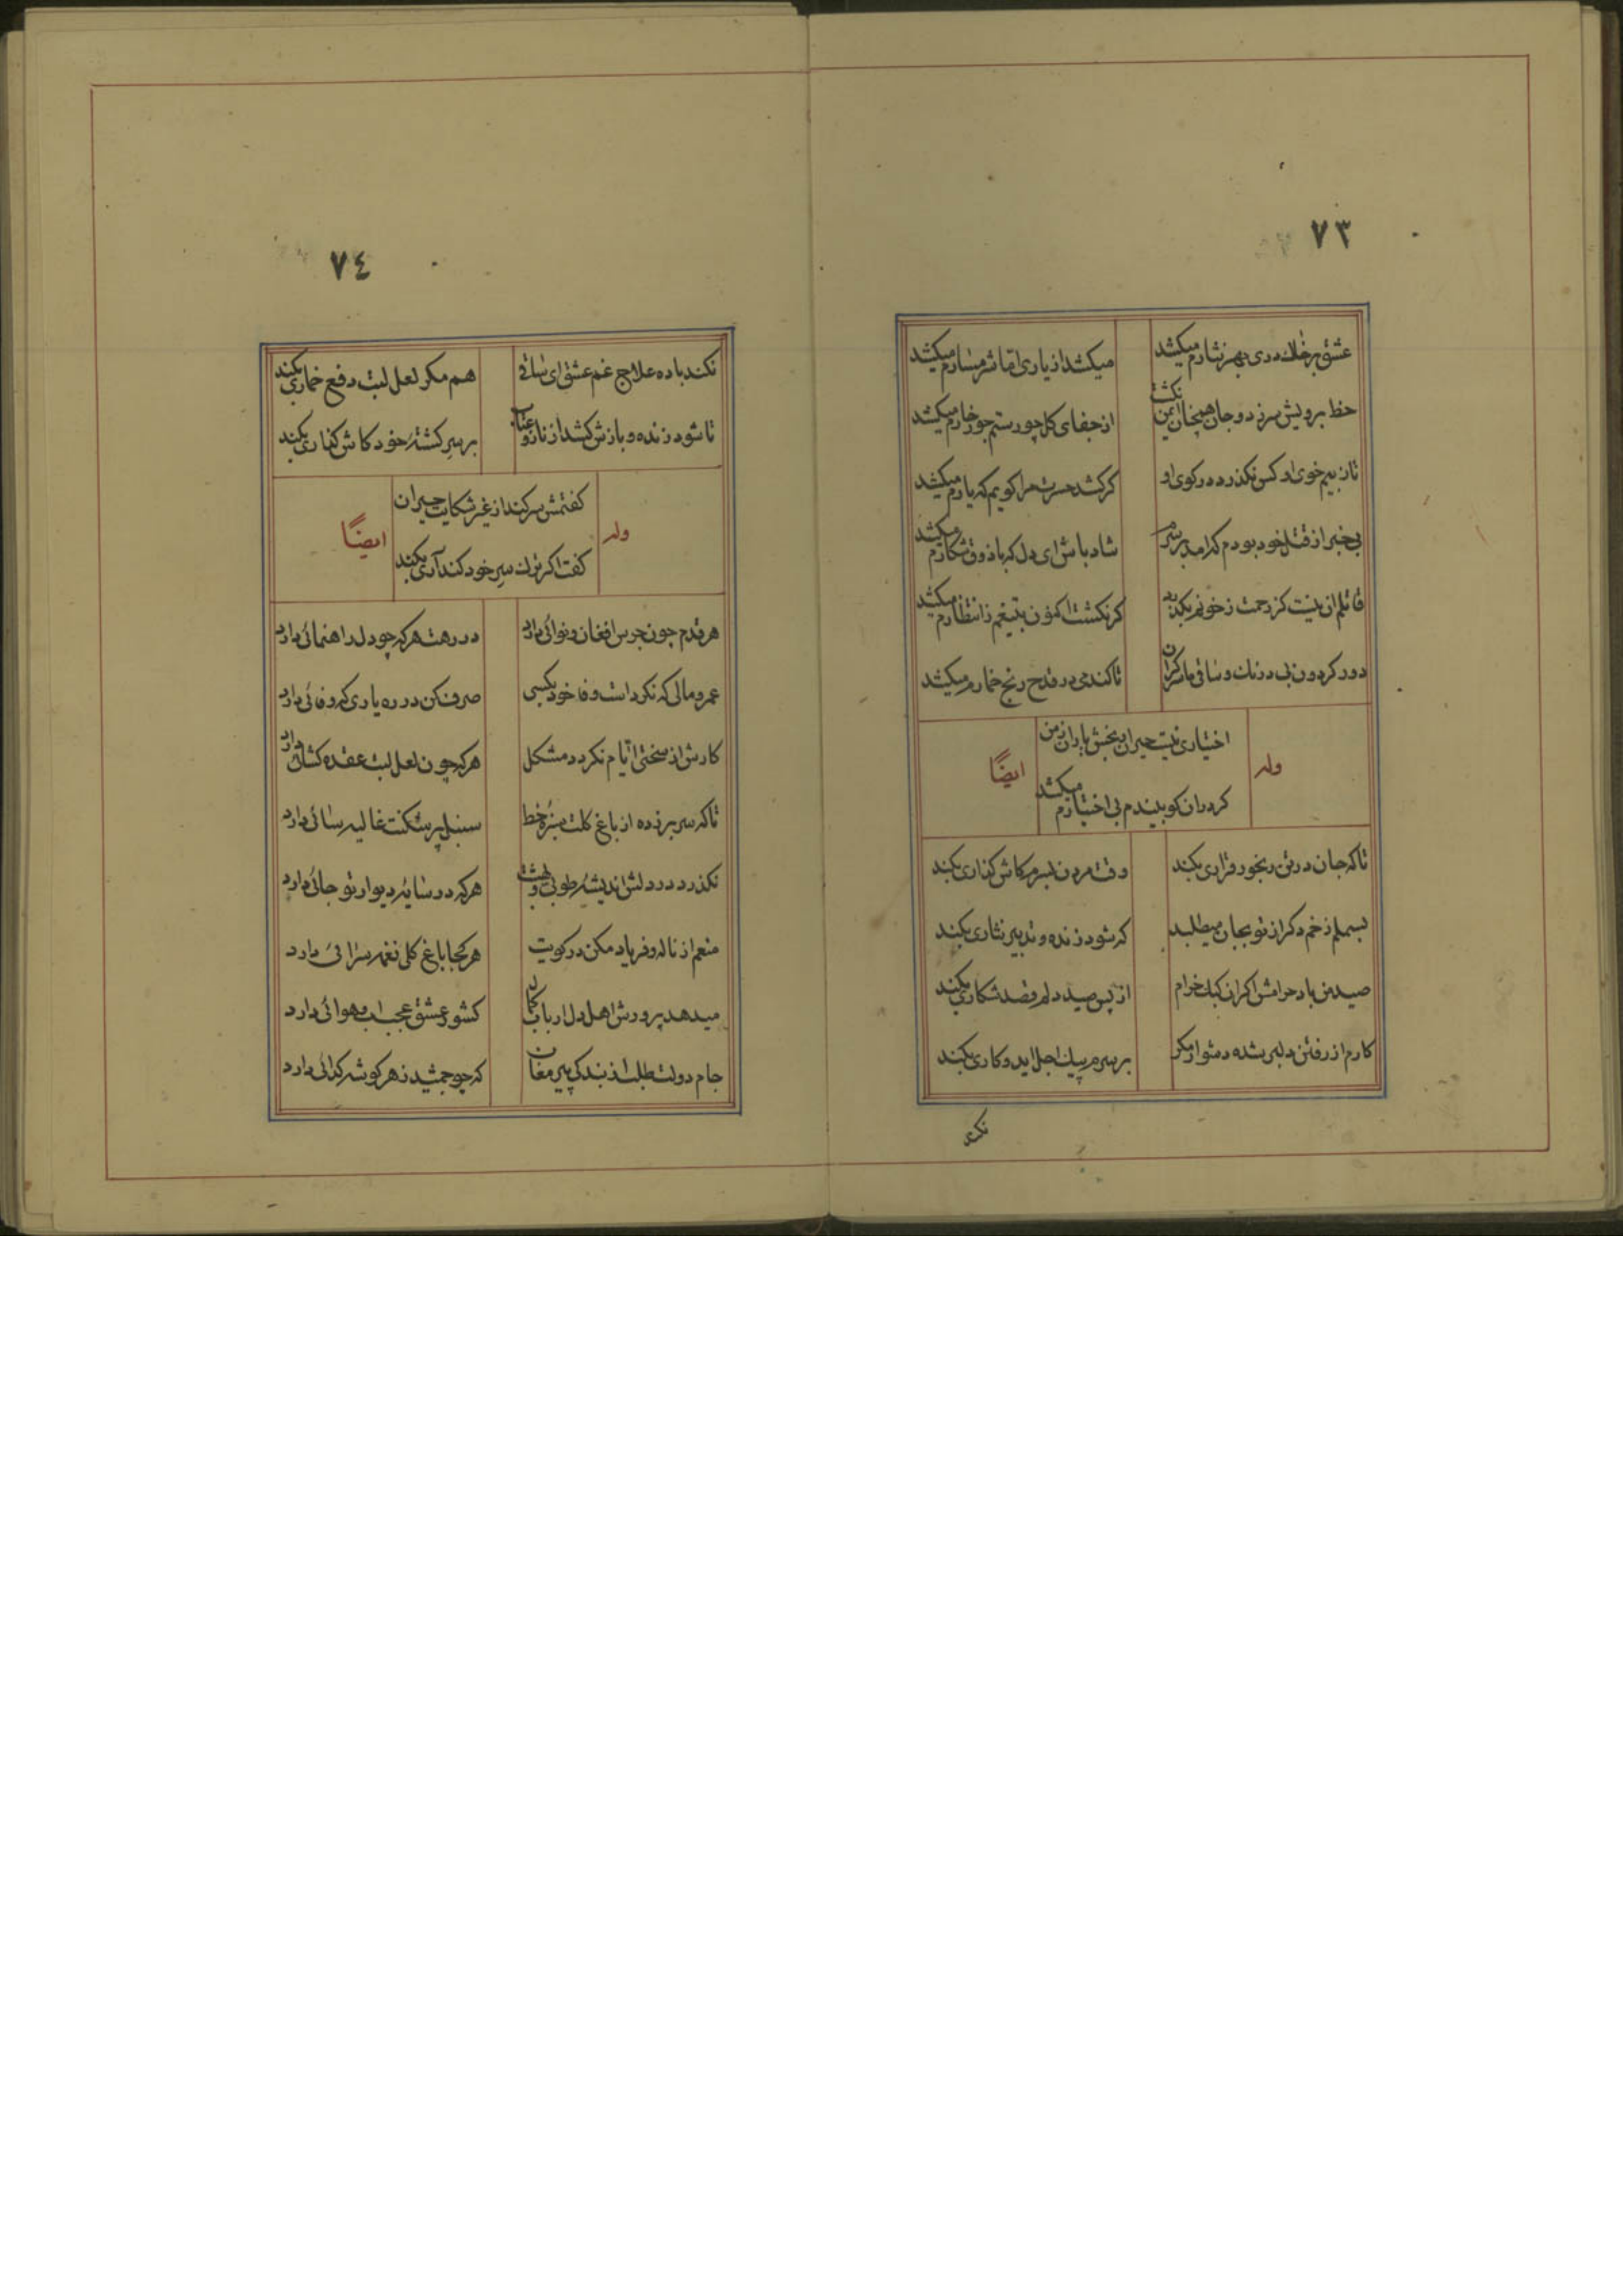 ٧٣
عشق بر خاك دری بهر نثارم میکشد
میکشد از یاری اما شرمسارم میکشد
خط برویش سر زد و جان همچنان ایمن نکشت
از جفای کل چو رستم جور خارم میکشد
تا ز بیم خوی او کس نکذرد در کوی او
کر کشد حسرت مرا کویم که یارم میکشد
بیخبر از قتل خود بودم که آمد بر سرم
شاد باش ای دل که با ذوق شکارم میکشد
قاتلم از نیست کز رحمت ز خونم بکذرد
کر نکشت اکنون بتیغم ز انتظارم میکشد
دور کردون بی درنك و ساقی ما سرکران
تا کند می در قدح رنج خمارم میکشد
ولد
اختیاری نیست حیران بخش یاران ز من
کر در ان کو بیندم بی اختیارم میکشد
ایضًا
تا که جان در تن رنجور قراری بکند
وقت مردن بسرم کاش کذاری بکند
بسملم زخم دکر از تو بجان میطلبد
که شود زنده و تدبیر نثاری بکند
صید من باد حرامش اکر ان کبك خرام
از پس صید دلم قصد شکاری بکند
کارم از رفتن دلبر شده دشوار مکر
بر سرم پیك اجل اید و کاری بکند
نکند
٧٤
نکند باده علاج غم عشق ای ساقی
هم مکر لعل لبت دفع خماری بکند
تا شود زنده و بازش کشد از ناز و عتاب
بر سر کشتهٔ خود کاش کذاری بکند
ولد
کفتمش سر کند از غیر شکایت حیران
کفت اکر ترك سر خود کند آری بکند
ایضًا
هر قدم چون جرس افغان و نوائی دارد
در رهت هر که چو دل راهنمائی دارد
عمر و مالی که نکرد است وفا خود بکسی
صرف کن در ره یاری که وفائی دارد
کارش از سختی ایّام نکردد مشکل
هر که چون لعل لبت عقده کشائی دارد
تا که سر بر زده از باغ کلت سبزهٔ خط
سنبل پر شکنت غالیه سائی دارد
نکذرد در دلش اندیشهٔ طوبی و بهشت
هر که در سایهٔ دیوار تو جائی دارد
منعم از ناله و فریاد مکن در کویت
هر کجا باغ کلی نغمه سرائی دارد
میدهد پرورش اهل دل ارباب کمال
کشور عشق عجب اب و هوائی دارد
جام دولت طلب از بندکی پیر مغان
که چو جمشید ز هر کوشه کدائی دارد